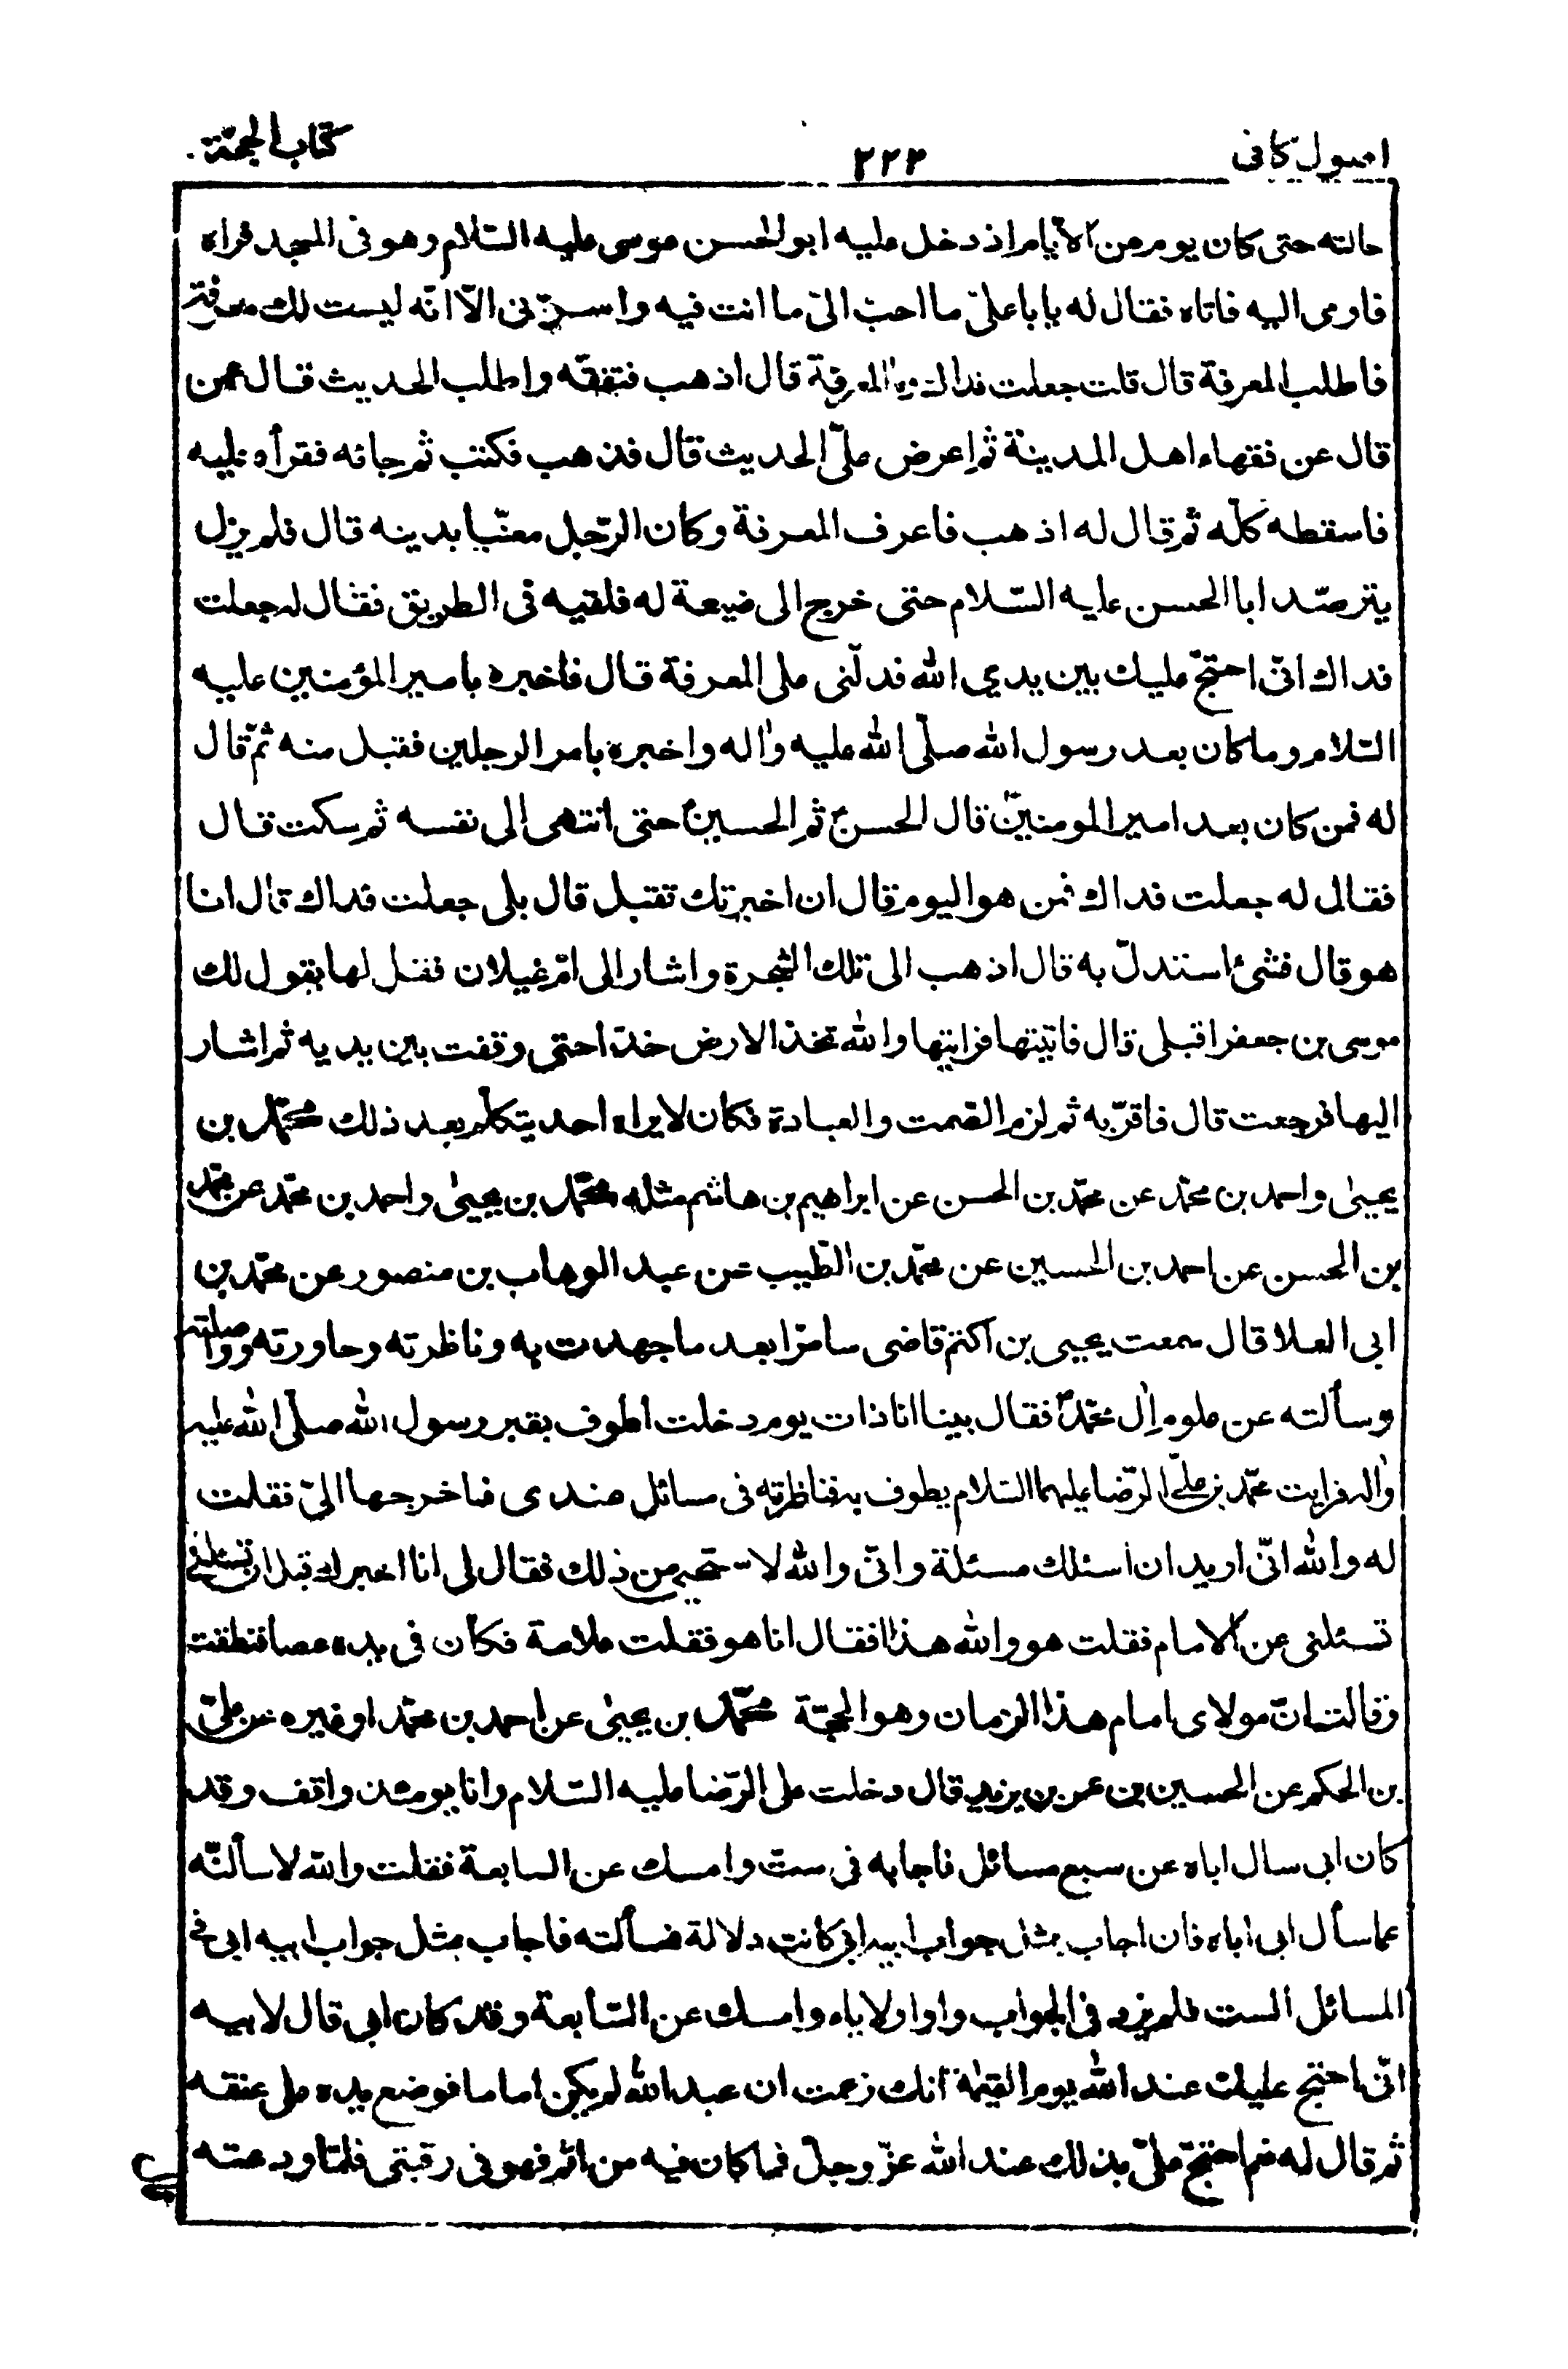 اصول كافى
٢٢٣
كتاب الحجّة
حالته حتى كان يوم من الأيام اذ دخل عليه ابوالحسن موسى عليه السّلام وهو فى المسجد فراه
فاومى اليه فاتاه فقال له يا باعلىّ ما احبّ الىّ ما انت فيه واسرّنى الّا انّه ليست لك معرفة
فاطلب المعرفة قال قلت جعلت فداك وما المعرفة قال اذهب فتفقّه واطلب الحديث قال عمن
قال عن فقهاء اهل المدينة ثم اعرض علىّ الحديث قال فذهب فكتب ثم جائه فقرأه عليه
فاسقطه كلّه ثم قال له اذهب فاعرف المعرفة وكان الرّجل معنّيا بدينه قال فلم يزل
يترصّد اباالحسن عليه السّلام حتى خرج الى ضيعة له فلقيه فى الطريق فقال له جعلت
فداك انّى احتجّ عليك بين يدي الله فدلّنى على المعرفة قال فاخبره بامير المؤمنين عليه
السّلام وما كان بعد رسول الله صلّى الله عليه واٰله واخبره بامر الرجلين فقبل منه ثمّ قال
له فمن كان بعد امير المومنينّ قال الحسنّ ثم الحسينّ حتى انتهى الى نفسه ثم سكت قال
فقال له جعلت فداك فمن هو اليوم قال ان اخبرتك تقبل قال بلى جعلت فداك قال انا
هو قال فشئ استدلّ به قال اذهب الى تلك الشجرة واشار الى امّ غيلان فقل لها يقول لك
موسى بن جعفر اقبلى قال فاتيتها فرايتها والله تخذ الارض خدّا حتى وقفت بين يديه ثم اشار
اليها فرجعت قال فاقرّ به ثم لزم الصّمت والعبادة فكان لا يراه احد يتكلّم بعد ذلك محمّد بن
يحيىٰ واحمد بن محمّد عن محمّد بن الحسن عن ابراهيم بن هاشم مثله محمّد بن يحيىٰ واحمد بن محمّد عن محمّد
بن الحسن عن احمد بن الحسين عن محمّد بن الطّيب عن عبد الوهاب بن منصور عن محمّد بن
ابى العلا قال سمعت يحيى بن اكثم قاضى سامرّا بعد ما جهدت به وناظرته وحاورته وواصلته
وسألته عن علوم اٰل محمّد فقال بينا انا ذات يوم دخلت اطوف بقبر رسول الله صلّى الله عليه
واٰله فرايت محمّد بن علىّ الرّضا عليهما السّلام يطوف به فناظرته فى مسائل عندى فاخرجها الىّ فقلت
له والله انّى اريد ان أسئلك مسئلة وانّى والله لاستحيى من ذلك فقال لى انا اخبرك قبل ان تسئلنى
تسئلنى عن الامام فقلت هو والله هذا فقال انا هو فقلت علامة فكان فى يده عصا فنطقت
وقالت انّ مولاى امام هذا الزمان وهو الحجّة محمّد بن يحيىٰ عن احمد بن محمّد او غيره عن علىّ
بن الحكم عن الحسين بن عمر بن يزيد قال دخلت على الرّضا عليه السّلام وانا يومئذ واقف وقد
كان ابى سال اباه عن سبع مسائل فاجابه فى ستّ وامسك عن السابعة فقلت والله لاسألنّه
عما سأل ابى اباه فان اجاب بمثل جواب ابيه كانت دلالة فسألته فاجاب بمثل جواب ابيه ابى فى
المسائل الست فلم يزد فى الجواب واوا ولا ياء وامسك عن السّابعة وقد كان ابى قال لابيه
انّى احتج عليك عند الله يوم القيٰمة انك زعمت ان عبد الله لم يكن اماما فوضع يده على عنقه
ثم قال له نعم احتجّ علىّ بذلك عند الله عزّ وجلّ فما كان فيه من اثم فهو فى رقبتى فلمّا ودعته